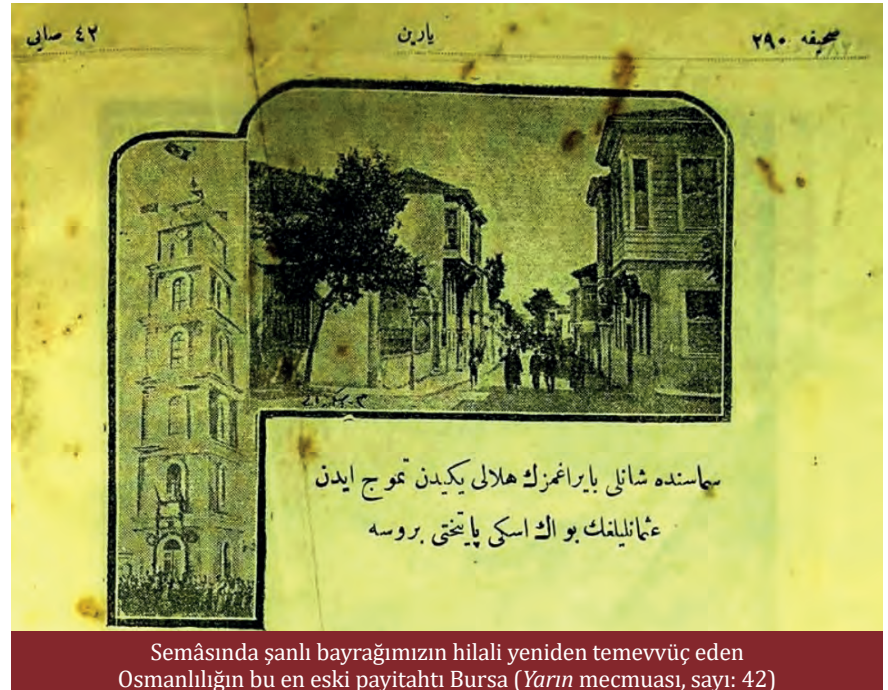 صحیفه ٢٩٠
یارین
٤٢ صایی
سماسنده شانلی بایراغمزڭ هلالی یكیدن تموج ایدن
عثمانلیلغڭ بو اڭ اسكی پایتختی بروسه
Semâsında şanlı bayrağımızın hilali yeniden temevvüç eden
Osmanlılığın bu en eski payitahtı Bursa (Yarın mecmuası, sayı: 42)